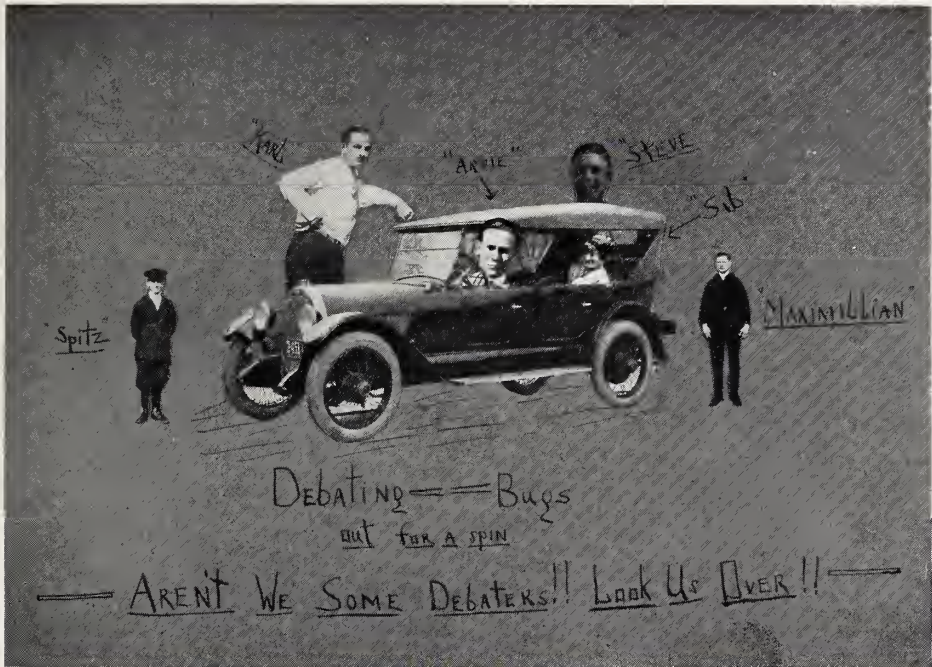 "ARTIE"
"STEVE"
"Sub"
"Spitz"
"MAXIMILLIAN"
DEBATING == BUGS
out for a spin
AREN'T WE SOME DEBATERS!! LOOK US OVER!!